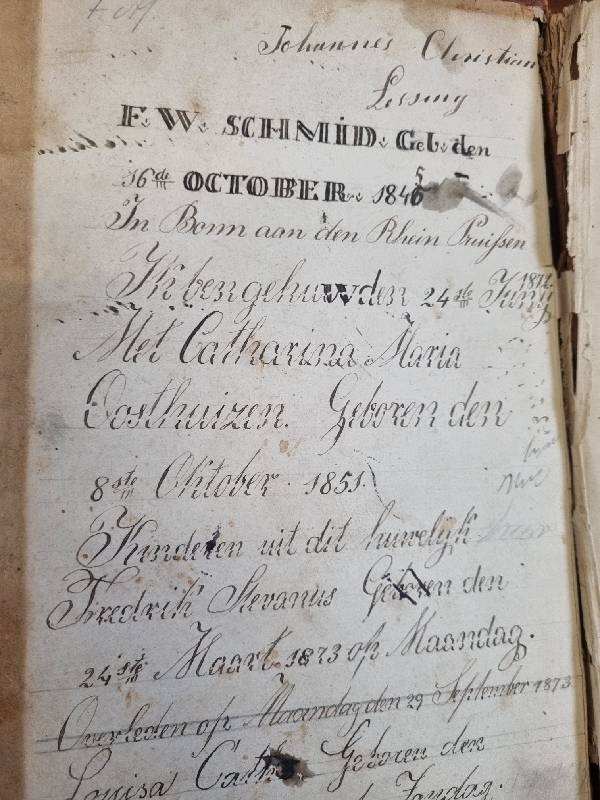 Johannes Christian
Lessing
F. W. SCHMID. Geb. den
16de OCTOBER. 1846
5
In Bonn aan den Rhein Pruissen
1872
Ik ben gehuwd den 24ste Juny
Met Catharina Maria
Oosthuizen. Geboren den
8ste Oktober 1851.
Kinderen uit dit huwelyk
Fredrik Stevanus Geboren den
24ste Maart 1873 op Maandag.
Overleden op Maandag den 29 September 1873
Louisa Cath. Geboren den